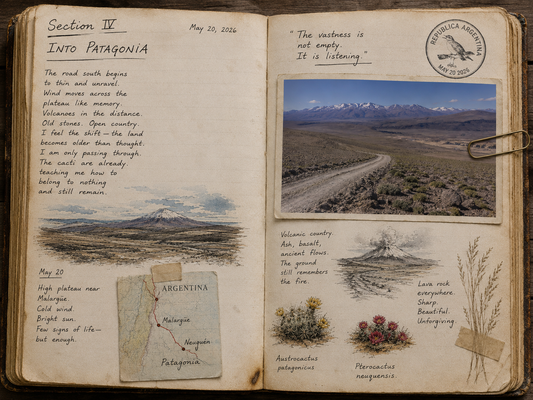 Section IV
May 20, 2026
INTO PATAGONIA
The road south begins
to thin and unravel.
Wind moves across the
plateau like memory.
Volcanoes in the distance.
Old stones. Open country.
I feel the shift — the land
becomes older than thought.
I am only passing through.
The cacti are already
teaching me how to
belong to nothing
and still remain.
May 20
High plateau near
Malargüe.
Cold wind.
Bright sun.
Few signs of life—
but enough.
ARGENTINA
Malargüe
Neuquén
Patagonia
"The vastness is
not empty.
It is listening."
REPUBLICA ARGENTINA
MAY 20 2026
Volcanic country.
Ash, basalt,
ancient flows.
The ground
still remembers
the fire.
Lava rock
everywhere.
Sharp.
Beautiful.
Unforgiving.
Austrocactus
patagonicus
Pterocactus
neuquensis.